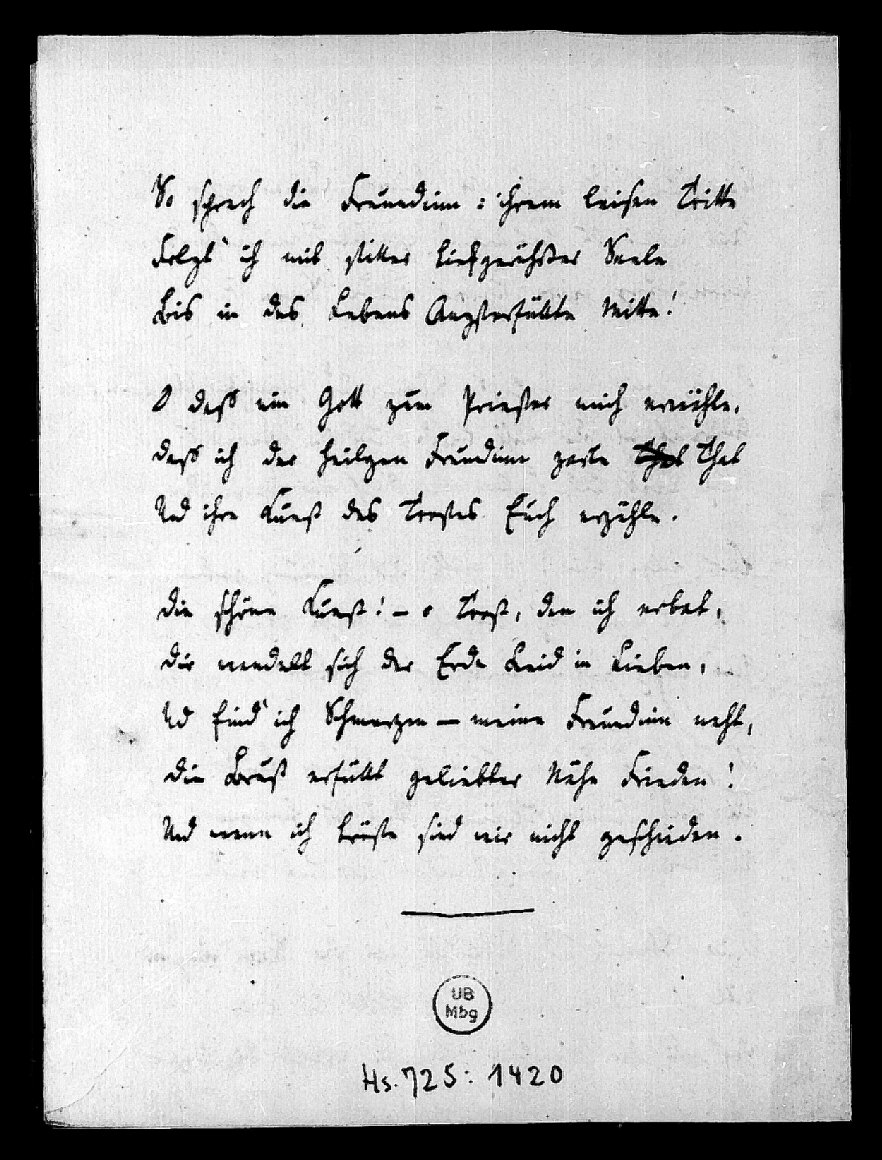 So sprach die Freundinn : ihrem leisen Tritte
Folgt' ich mit stiller tiefgerührter Seele
Bis in des Lebens Angsterfüllte Mitte!
O daß ein Gott zum Priester mich erwähle,
Daß ich der heilgen Freundinn zarte That
Und ihre Kunst des Trostes Euch erzähle.
Die schöne Kunst! – o Trost, den ich erbat,
Dir wandelt sich der Erde Leid in Lieben,
Und find' ich Schmerzen – meine Freundinn naht,
Die Brust erfüllt geliebter Nähe Frieden!
Und wenn ich tröste sind wir nicht geschieden.
UB
Mbg
Hs. 725: 1420